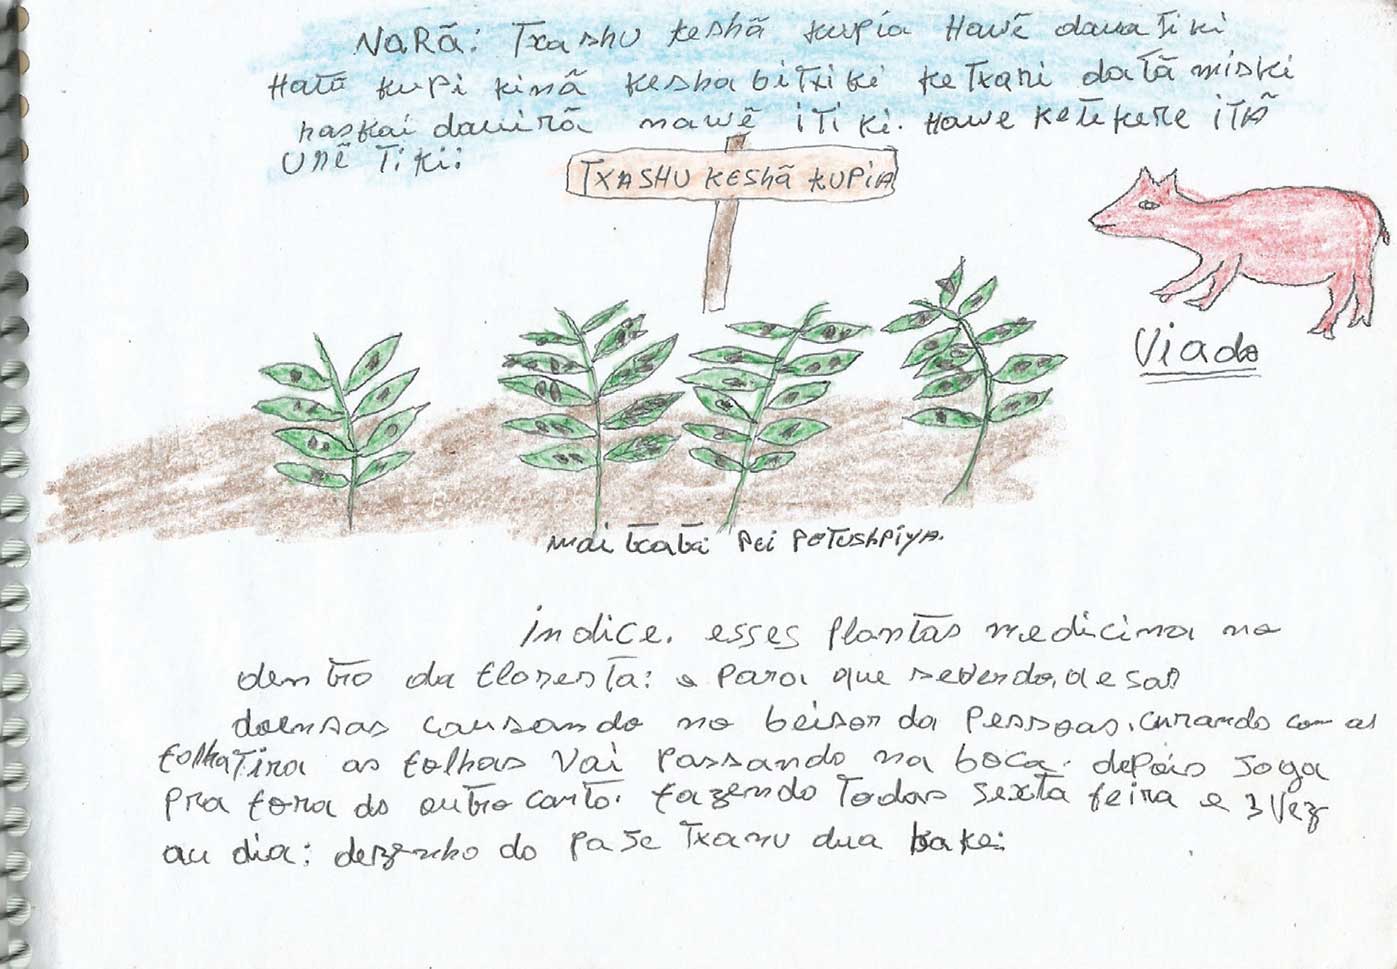 NaRã: Txashu keshã kupia Hawẽ dauatiki
Hatũ kupi kinã kesha bitxiki ketxani datã miski
haskai dauirã nawẽ itiki. Hawe ketekere itã
unẽ tiki:
TXASHU KESHÃ KUPIA
Viado
mai txatã pei Potushpiya.
índice. esses Plantas medicina no
dentro da floresta: e para que
doensas causando no beisor da Pessoas, curando com as
folha Tira as folhas Vai Passando na boca. depois Joga
Pra fora do outro canto. fazendo Todas Sexta feira e 3 Vez
au dia: dezenho do Paje Txanu dua bake: